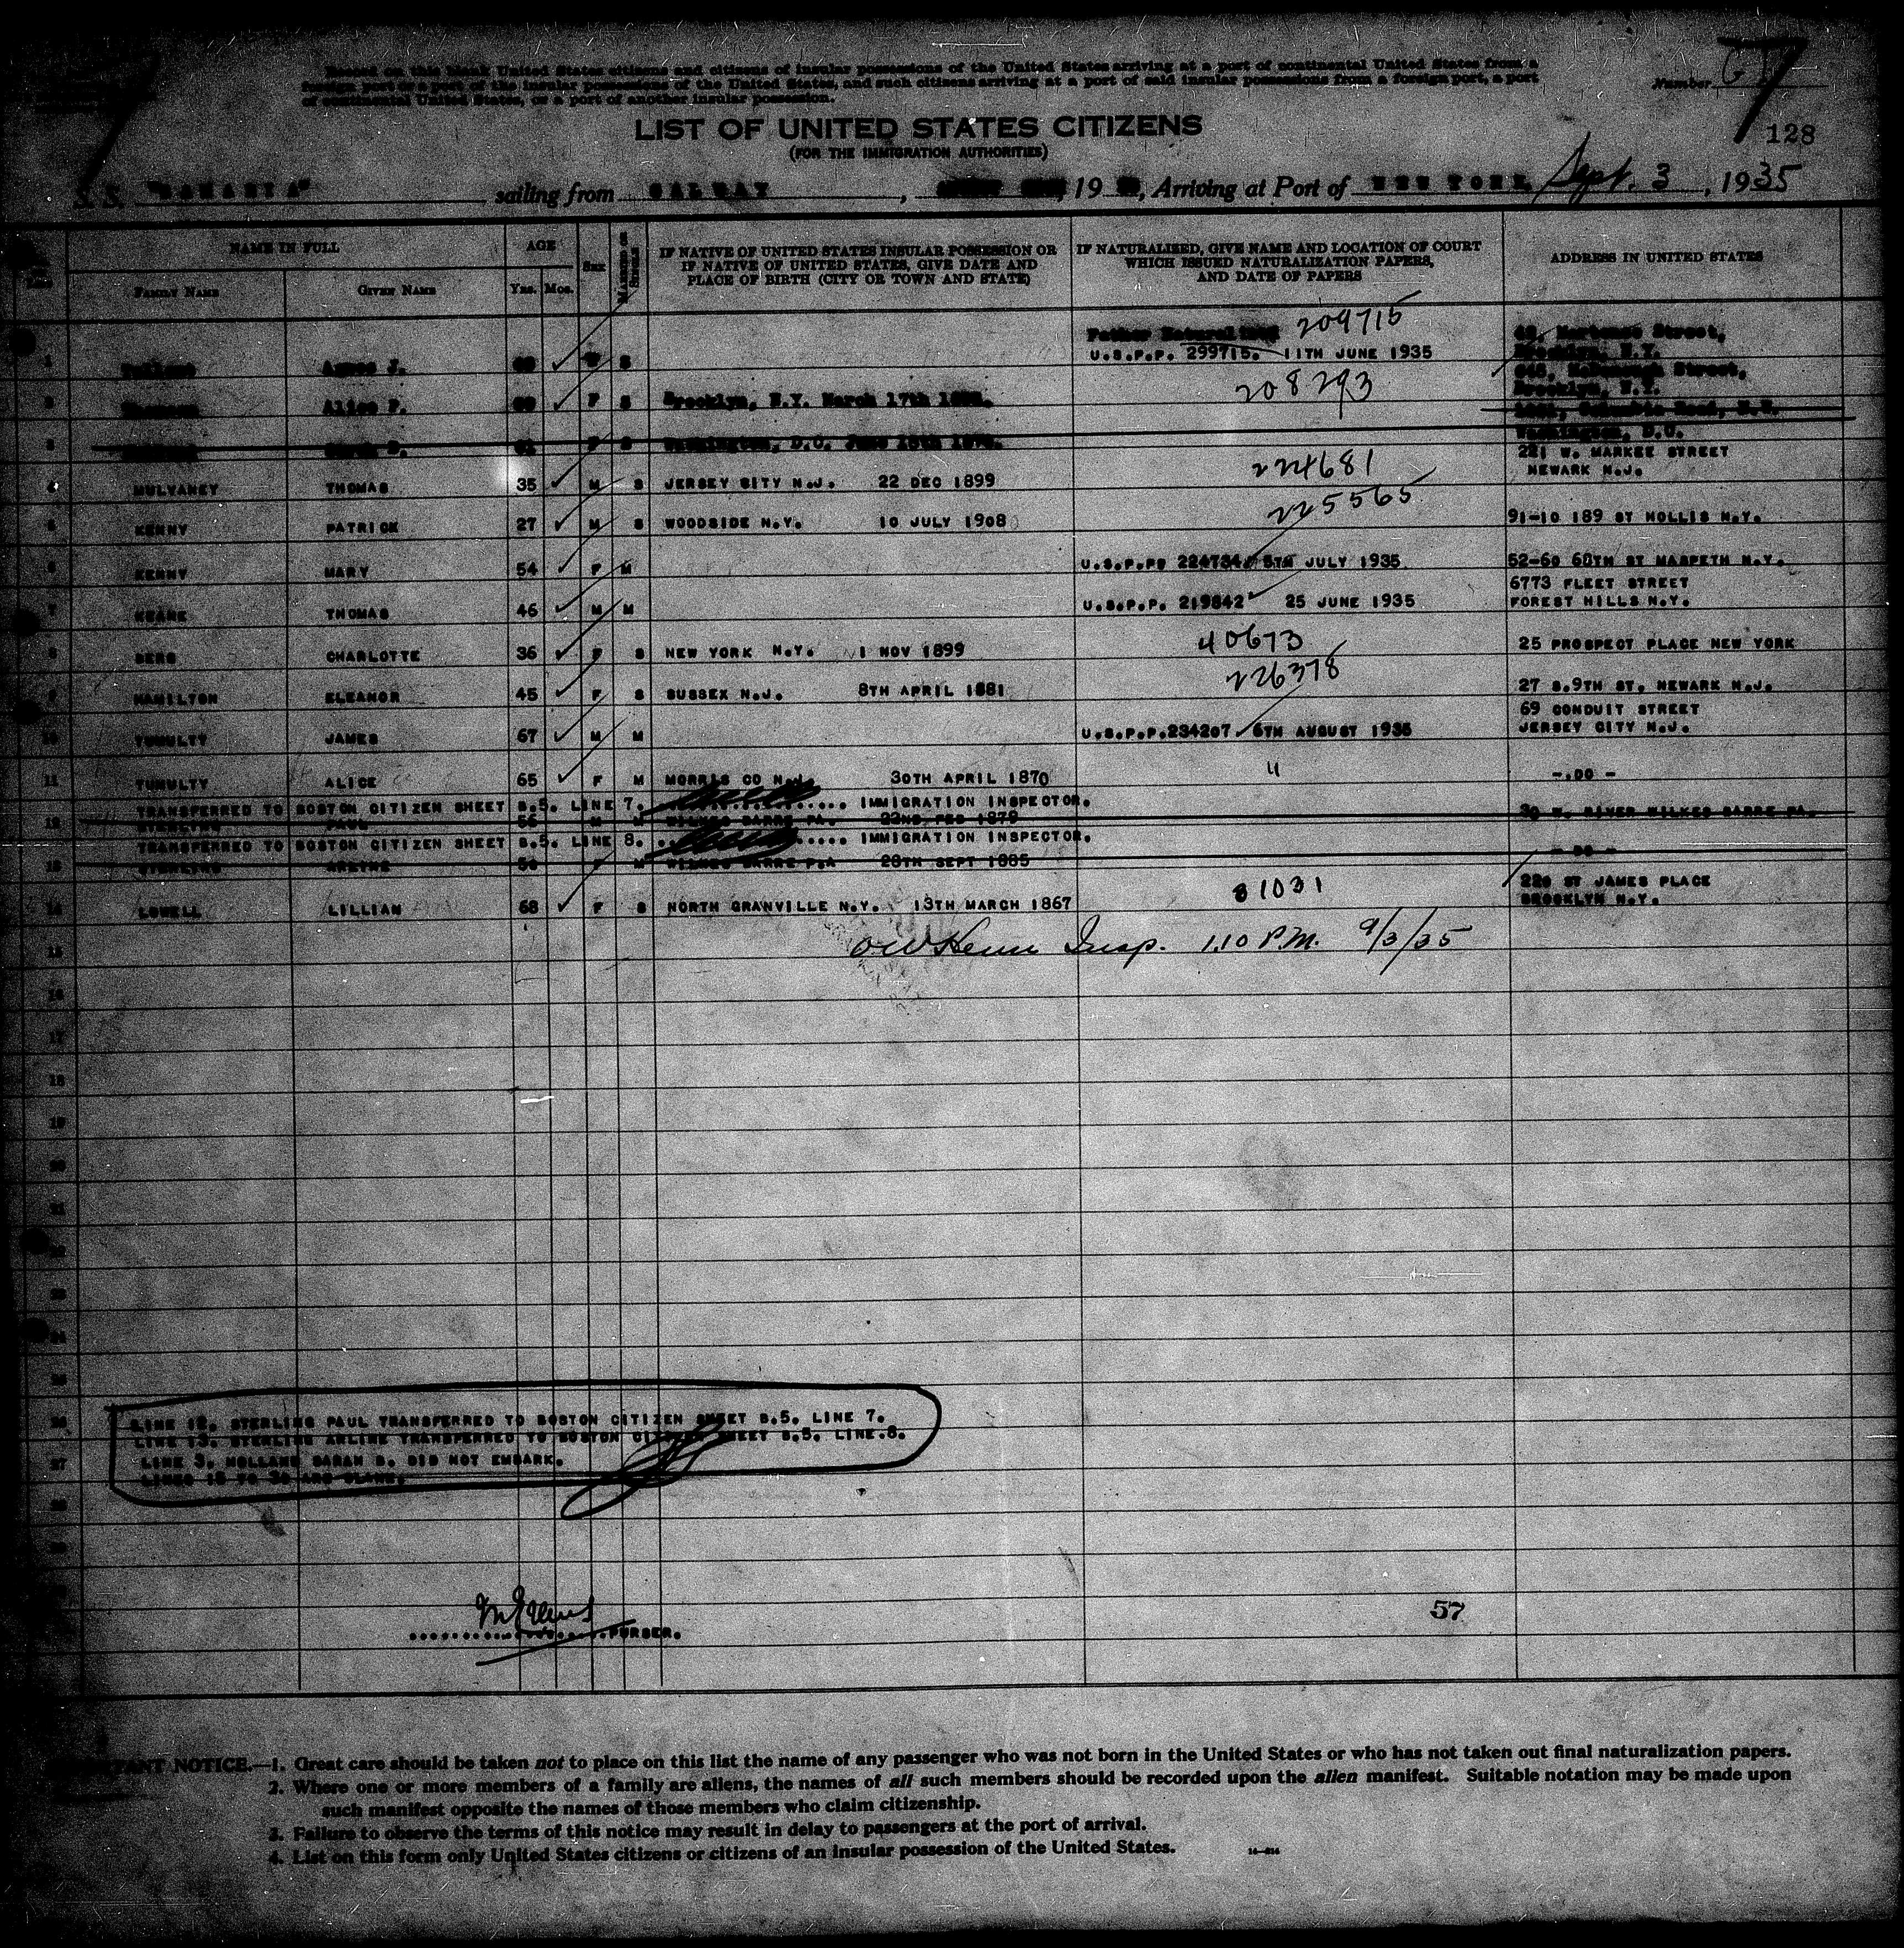 Number
128
LIST OF UNITED STATES CITIZENS
(FOR THE IMMIGRATION AUTHORITIES)
S.S. sailing from GALWAY, 19 , Arriving at Port of NEW YORK, Sept. 3, 1935
NAME IN FULL
AGE
SEX
MARRIED OR SINGLE
IF NATIVE OF UNITED STATES INSULAR POSSESSION OR IF NATIVE OF UNITED STATES, GIVE DATE AND PLACE OF BIRTH (CITY OR TOWN AND STATE)
IF NATURALIZED, GIVE NAME AND LOCATION OF COURT WHICH ISSUED NATURALIZATION PAPERS, AND DATE OF PAPERS
ADDRESS IN UNITED STATES
FAMILY NAME GIVEN NAME Yrs. Mos.
Father 209715
1 Agnes J. S U.S.P.P. 299715. 11TH JUNE 1935 Street, Brooklyn, N.Y.
2 Alice P. F S Brooklyn, N.Y. March 17th 208293 Street, Brooklyn, N.Y.
3 F S Washington, D.C. June Washington, D.C.
4 MULVANEY THOMAS 35 M S JERSEY CITY N.J. 22 DEC 1899 224681 221 W. MARKET STREET NEWARK N.J.
5 KENNY PATRICK 27 M S WOODSIDE N.Y. 10 JULY 1908 225565 91-10 189 ST HOLLIS N.Y.
6 KENNY MARY 54 F M U.S.P.P. 224734 5TH JULY 1935 52-60 60TH ST MASPETH N.Y.
7 KEANE THOMAS 46 M M U.S.P.P. 219842 25 JUNE 1935 6773 FLEET STREET FOREST HILLS N.Y.
8 BERG CHARLOTTE 36 F S NEW YORK N.Y. 1 NOV 1899 40673 25 PROSPECT PLACE NEW YORK
9 HAMILTON ELEANOR 45 F S SUSSEX N.J. 8TH APRIL 1881 226378 27 S.9TH ST. NEWARK N.J.
10 TUMULTY JAMES 67 M M U.S.P.P.234207 6TH AUGUST 1935 69 CONDUIT STREET JERSEY CITY N.J.
11 TUMULTY ALICE 65 F M MORRIS CO N.J. 30TH APRIL 1870 " -.DO -
TRANSFERRED TO BOSTON CITIZEN SHEET B.5. LINE 7. IMMIGRATION INSPECTOR.
12 STERLING PAUL 56 M M WILKES BARRE PA. 22ND FEB 1879 30 W. RIVER WILKES BARRE PA.
TRANSFERRED TO BOSTON CITIZEN SHEET B.5. LINE 8. IMMIGRATION INSPECTOR.
13 STERLING ARLINE F M WILKES BARRE P.A 28TH SEPT 1885 - DO -
14 LOWELL LILLIAN 68 F S NORTH GRANVILLE N.Y. 13TH MARCH 1867 81031 220 ST JAMES PLACE BROOKLYN N.Y.
15 Insp. 1.10 P.M. 9/3/35
16
17
18
19
20
21
22
23
24
25
26 LINE 12. STERLING PAUL TRANSFERRED TO BOSTON CITIZEN SHEET B.5. LINE 7.
LINE 13. STERLING ARLINE TRANSFERRED TO BOSTON CITIZEN SHEET B.5. LINE.8.
27 LINE 3. HOLLAND SARAH B. DID NOT EMBARK.
LINES 15 TO 30 ARE BLANK.
28
29
PURSER.
57
IMPORTANT NOTICE.—1. Great care should be taken not to place on this list the name of any passenger who was not born in the United States or who has not taken out final naturalization papers.
2. Where one or more members of a family are aliens, the names of all such members should be recorded upon the alien manifest. Suitable notation may be made upon
such manifest opposite the names of those members who claim citizenship.
3. Failure to observe the terms of this notice may result in delay to passengers at the port of arrival.
4. List on this form only United States citizens or citizens of an insular possession of the United States.